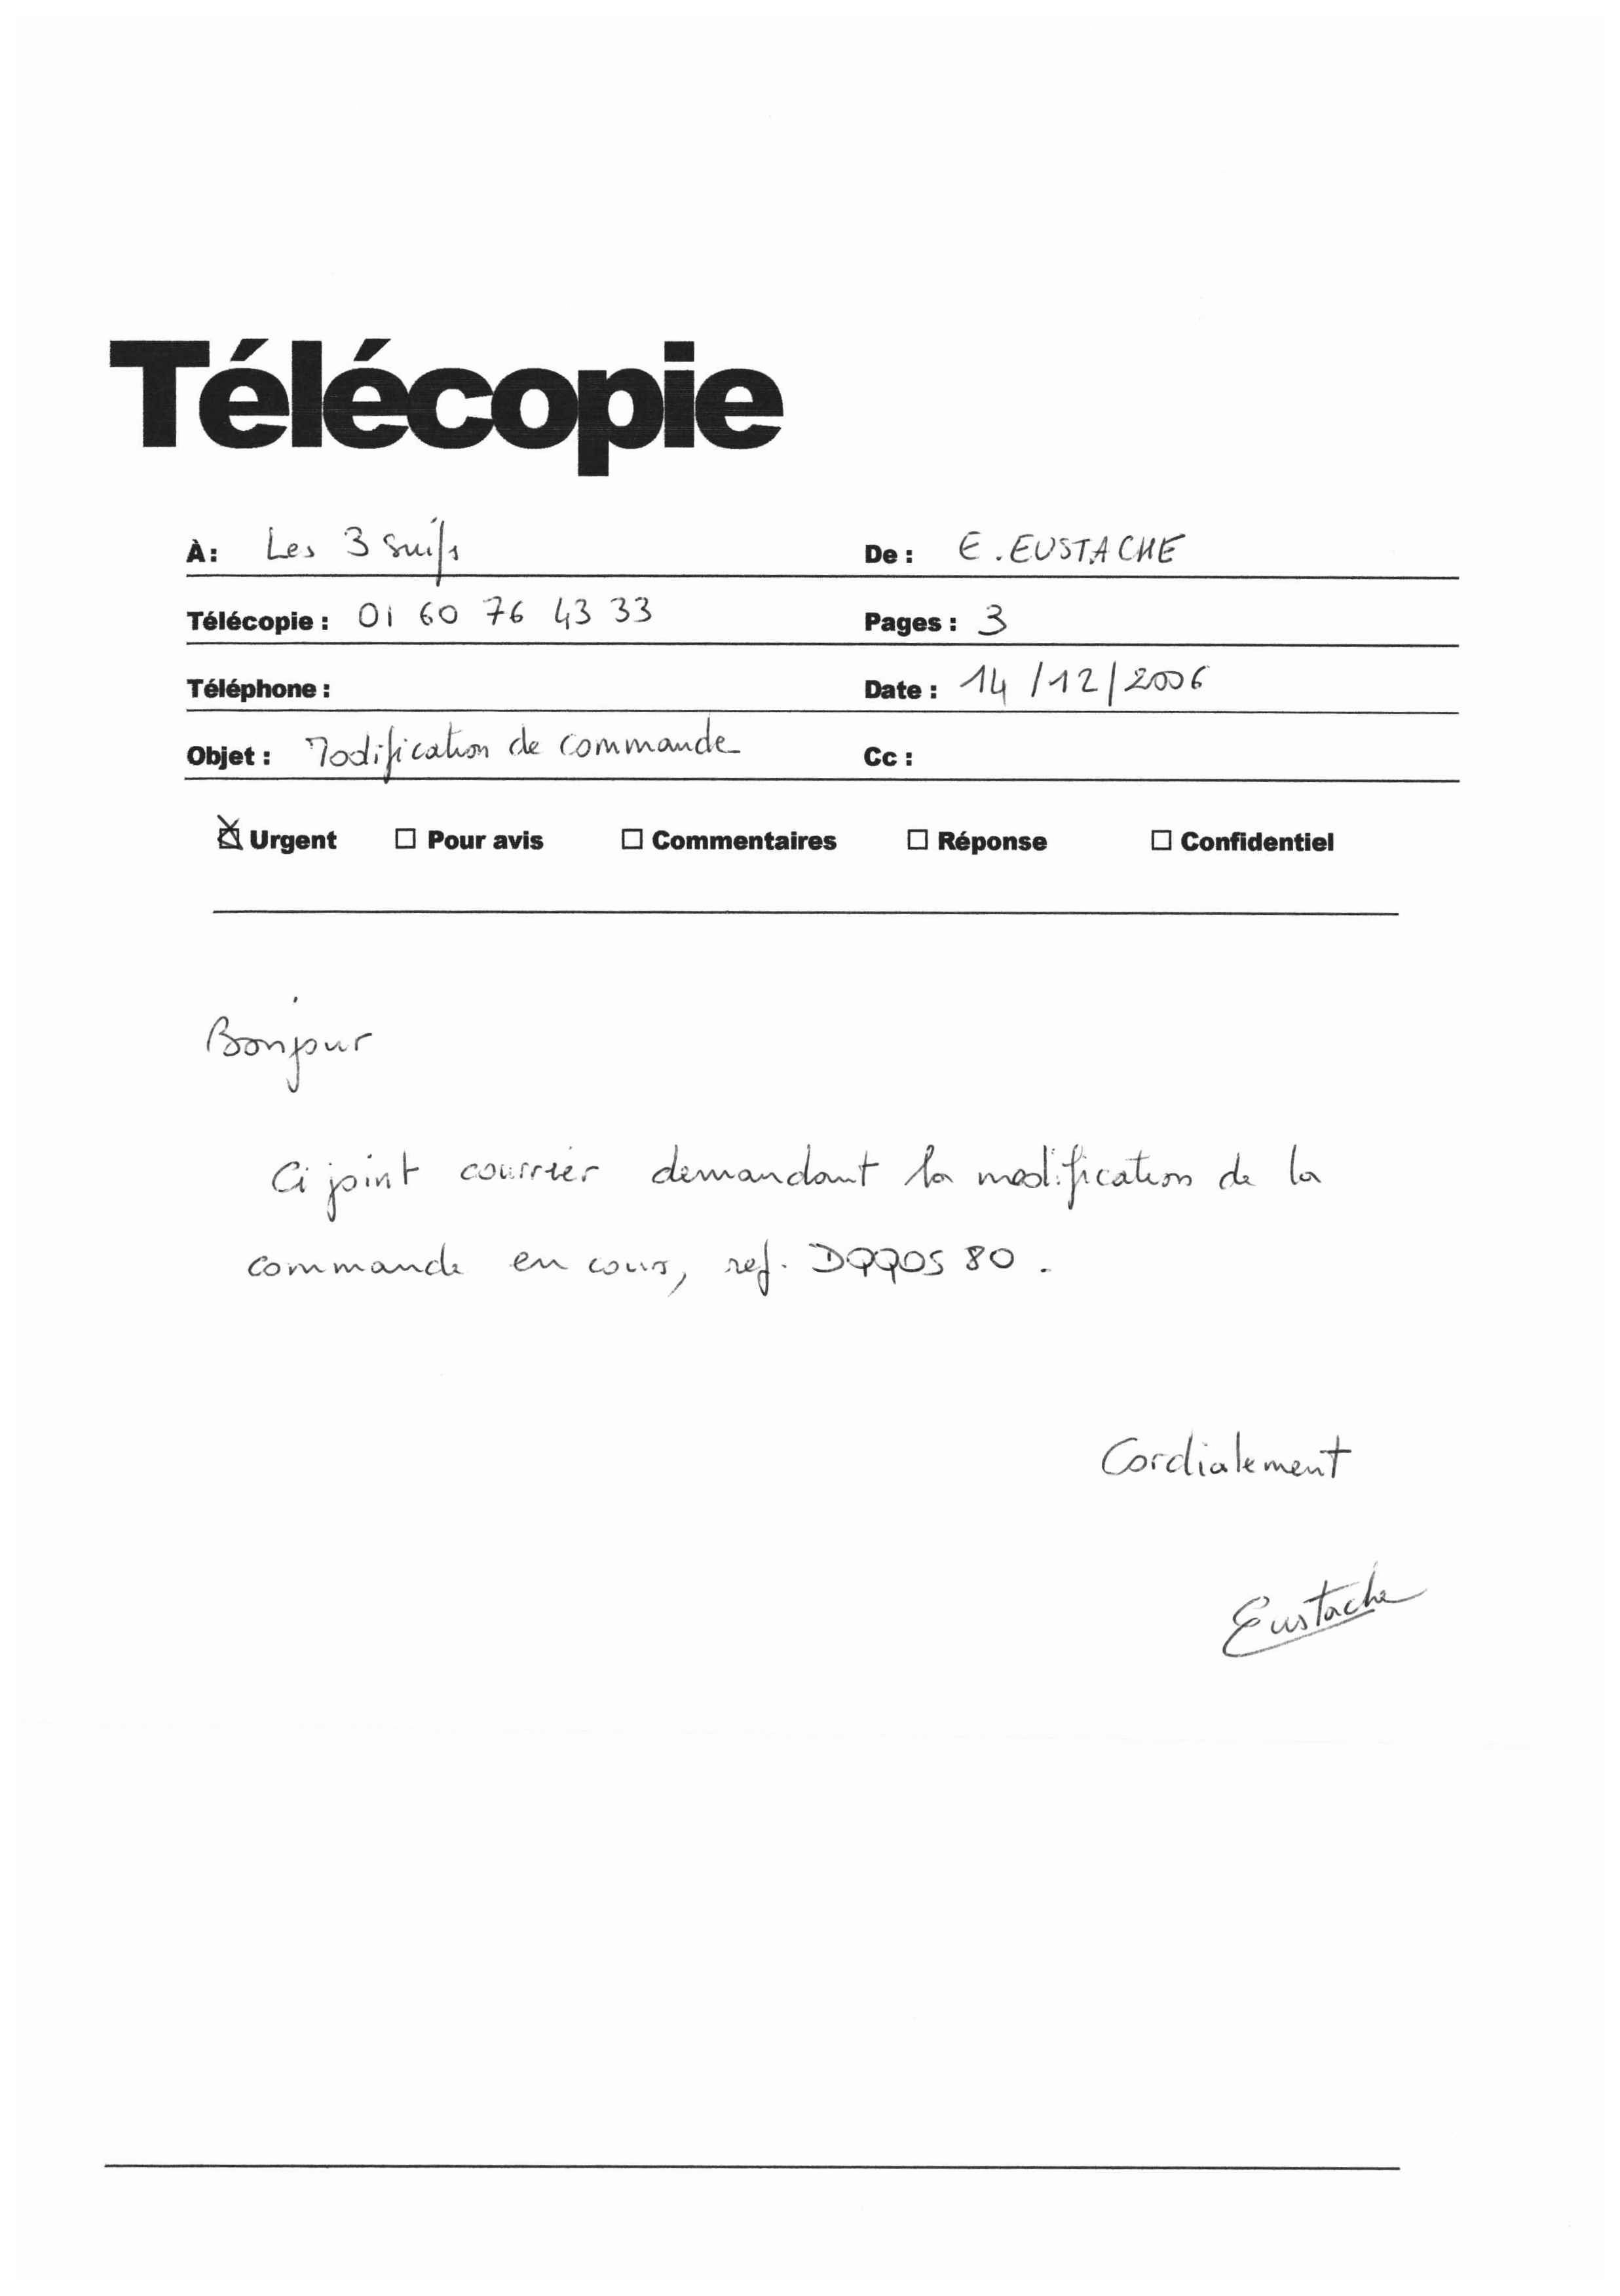 Télécopie
À : Les 3 suifs De : E. EUSTACHE
Télécopie : 01 60 76 43 33 Pages : 3
Téléphone : Date : 14/12/2006
Objet : Modification de commande Cc :
Urgent Pour avis Commentaires Réponse Confidentiel
Bonjour
Ci joint courrier demandant la modification de la
commande en cours, ref. DQQOS 80.
Cordialement
Eustache